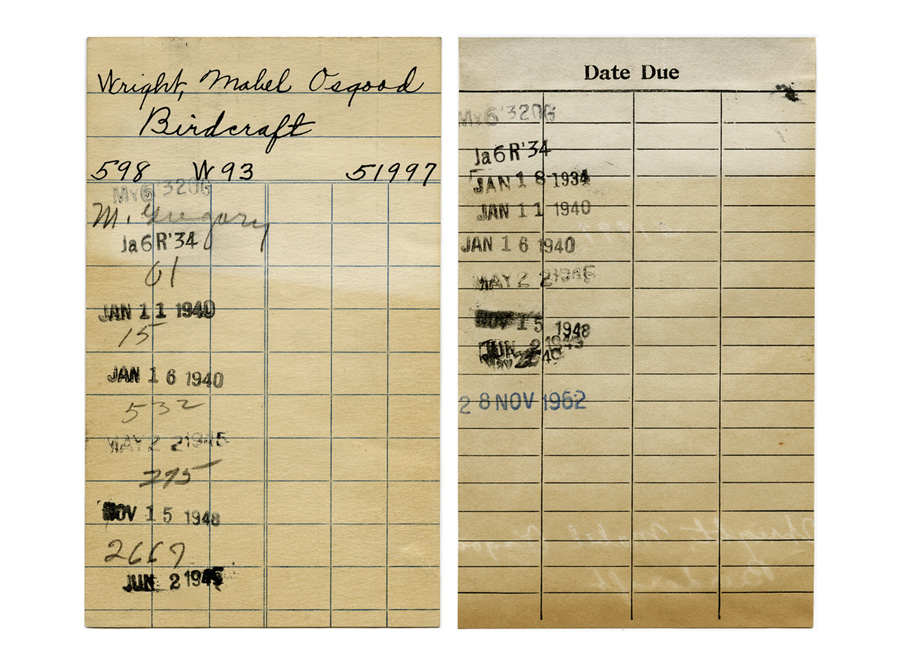 Wright, Mabel Osgood
Birdcraft
598 W93 51997
My6'320G
M. Gregory
Ja6R'34
61
JAN 11 1940
15
JAN 16 1940
532
MAY 2 2 1945
295
NOV 15 1948
2667
JUN 2 194
Date Due
My6'320G
Ja6R'34
JAN 18 1934
JAN 11 1940
JAN 16 1940
MAY 2 2 1945
NOV 15 1948
JUN 2
28 NOV 1962
Wright, Mabel